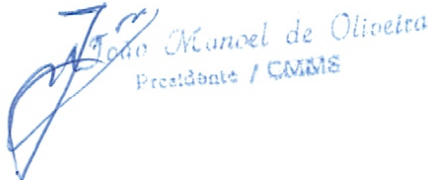 João Manoel de Oliveira
Presidente / CMMS